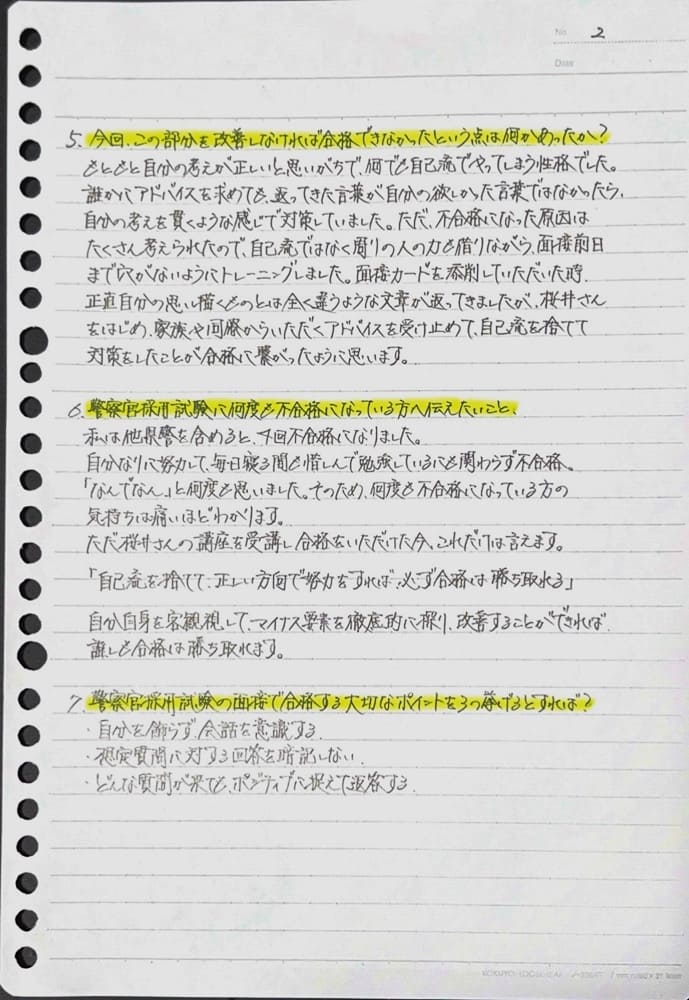 No. 2
Date
5. 今回、この部分を改善しなければ合格できなかったという点は何かあったか?
もともと自分の考えが正しいと思いがちで、何でも自己流でやってしまう性格でした。
誰かにアドバイスを求めても、返ってきた言葉が自分の欲しかった言葉ではなかったら、
自分の考えを貫くような感じで対策していました。ただ、不合格になった原因は
たくさん考えられたので、自己流ではなく周りの人の力も借りながら、面接前日
まで穴がないようにトレーニングしました。面接カードを添削していただいた時、
正直自分の思い描くものとは全く違うような文章が返ってきましたが、桜井さん
をはじめ、家族や同僚からいただくアドバイスを受け止めて、自己流を捨てて
対策をしたことが合格に繋がったように思います。
6. 警察官採用試験に何度も不合格になっている方へ伝えたいこと、
私は他県警を含めると、4回不合格になりました。
自分なりに努力して、毎日寝る間も惜しんで勉強しているにも関わらず不合格。
「なんでなん」と何度も思いました。そのため、何度も不合格になっている方の
気持ちは痛いほどわかります。
ただ桜井さんの講座を受講し合格をいただけた今、これだけは言えます。
「自己流を捨てて、正しい方向で努力をすれば、必ず合格は勝ち取れる」
自分自身を客観視して、マイナス要素を徹底的に探り、改善することができれば、
誰しも合格は勝ち取れます。
7. 警察官採用試験の面接で合格する大切なポイントを3つ挙げるとすれば?
・自分を飾らず、会話を意識する
・想定質問に対する回答を暗記しない
・どんな質問が来ても、ポジティブに捉えて返答する
KOKUYO LOOSE-LEAF